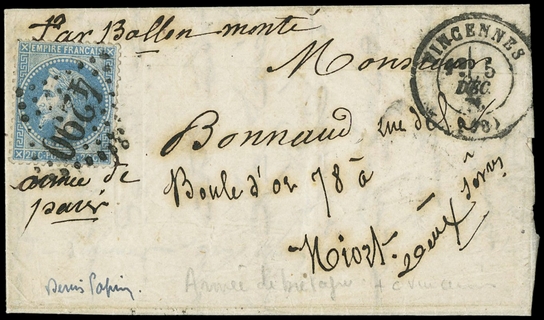 Par Ballon monté
EMPIRE FRANÇAIS
4299
VINCENNES
5
DEC.
Monsieur
Bonnaud rue de la
Boule d'or 78 à
Niort. Deux Sèvres
armée de
paris
Denis Papin
Armée de bretagne